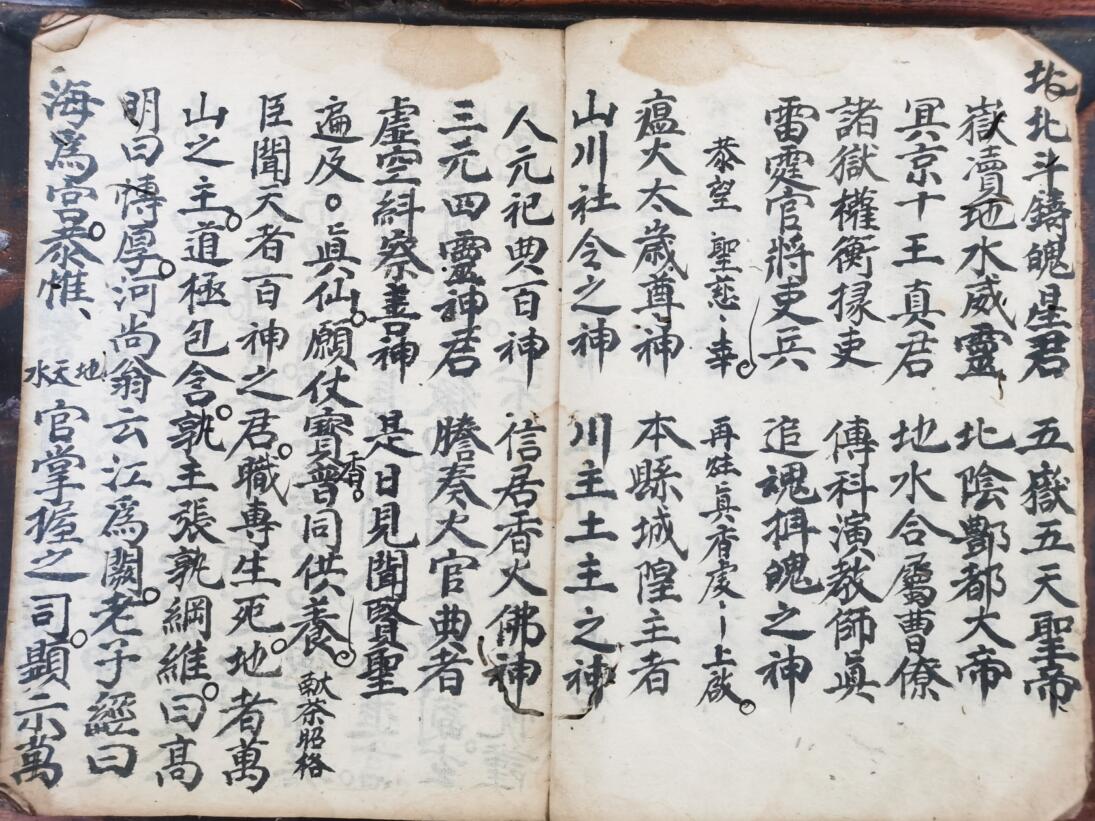 北北斗鑄魄星君 五嶽五天聖帝
嶽瀆地水威靈 北陰酆都大帝
冥京十王真君 地水合屬曹僚
諸獄權衡掾吏 傳科演教師真
雷霆官將吏兵 追魂攝魄之神
恭望 聖慈 再炷真香虔上啟
瘟火太歲尊神 本縣城隍主者
山川社令之神 川主土主之神
人元祀典百神 信居香火佛神
三元四靈神君 騰奏火官典者
虛空糾察善神 是日見聞賢聖
遍及真仙願仗寶香普同供養 献茶昭格
臣聞天者百神之君職專生死地者萬
山之主道極包含孰主張孰綱維曰高
明曰慱厚河尚翁云江為闕老子經曰
海為宮恭惟、地天水官掌握之司顯示萬